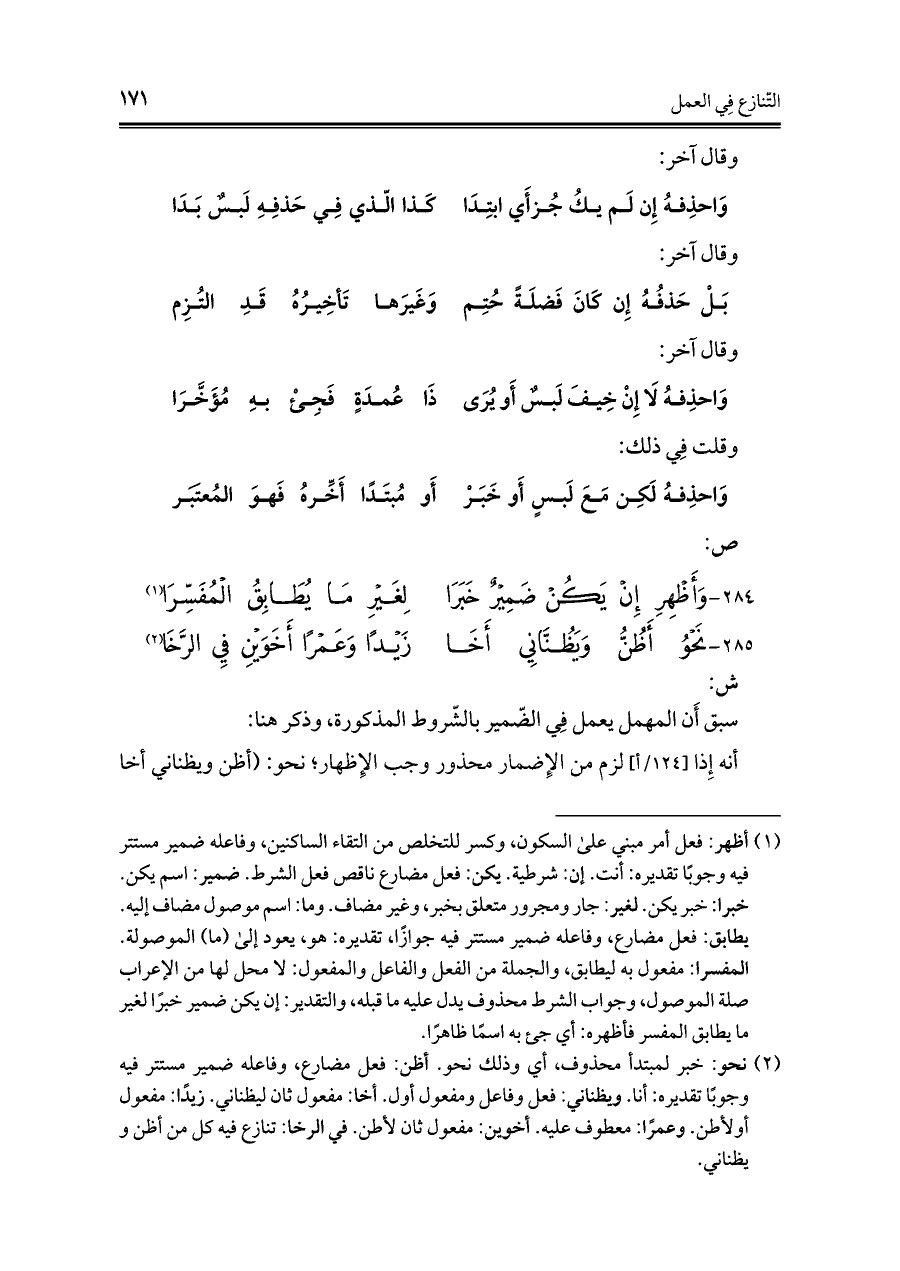 التّنازع فِي العمل ١٧١
وقال آخر:
وَاحذِفـهُ إِن لَـم يـكُ جُـزأَي ابتِـدَا كَـذا الّـذي فِـي حَذفِـهِ لَبـسٌ بَـدَا
وقال آخر:
بَـلْ حَذفُـهُ إِن كَانَ فَضلَـةً حُتِـم وَغَيرَهـا تَأخِيـرُهُ قَـدِ التُـزِم
وقال آخر:
وَاحذِفـهُ لَا إِنْ خِيـفَ لَبـسٌ أَو يُرَى ذَا عُمـدَةٍ فَجِـئْ بـهِ مُؤَخَّـرَا
وقلت فِي ذلك:
وَاحذِفـهُ لَكِـن مَـعَ لَبـسٍ أَو خَبَـرْ أَو مُبتَـدًا أَخِّـرهُ فَهـوَ المُعتَبَـر
ص:
٢٨٤-وَأَظْهِرِ إِنْ يَكُـنْ ضَمِيْرٌ خَبَرَا لِغَيْرِ مَـا يُطَـابِقُ الْمُفَسِّـرَا(١)
٢٨٥-نَحْوُ أَظُنُّ وَيَظُنَّانِي أَخَـا زَيْـدًا وَعَمْرًا أَخَوَيْنِ فِي الرَّخَا(٢)
ش:
سبق أَن المهمل يعمل فِي الضّمير بالشّروط المذكورة، وذكر هنا:
أنه إِذا [١٢٤/أ] لزم من الإِضمار محذور وجب الإِظهار؛ نحو: (أظن ويظناني أخا
(١) أظهر: فعل أمر مبني على السكون، وكسر للتخلص من التقاء الساكنين، وفاعله ضمير مستتر
فيه وجوبًا تقديره: أنت. إن: شرطية. يكن: فعل مضارع ناقص فعل الشرط. ضمير: اسم يكن.
خبرا: خبر يكن. لغير: جار ومجرور متعلق بخبر، وغير مضاف. وما: اسم موصول مضاف إليه.
يطابق: فعل مضارع، وفاعله ضمير مستتر فيه جوازًا، تقديره: هو، يعود إلى (ما) الموصولة.
المفسرا: مفعول به ليطابق، والجملة من الفعل والفاعل والمفعول: لا محل لها من الإعراب
صلة الموصول، وجواب الشرط محذوف يدل عليه ما قبله، والتقدير: إن يكن ضمير خبرًا لغير
ما يطابق المفسر فأظهره: أي جئ به اسمًا ظاهرًا.
(٢) نحو: خبر لمبتدأ محذوف، أي وذلك نحو. أظن: فعل مضارع، وفاعله ضمير مستتر فيه
وجوبًا تقديره: أنا. ويظناني: فعل وفاعل ومفعول أول. أخا: مفعول ثان ليظناني. زيدًا: مفعول
أولأطن. وعمرًا: معطوف عليه. أخوين: مفعول ثان لأطن. في الرخا: تنازع فيه كل من أظن و
يظناني.